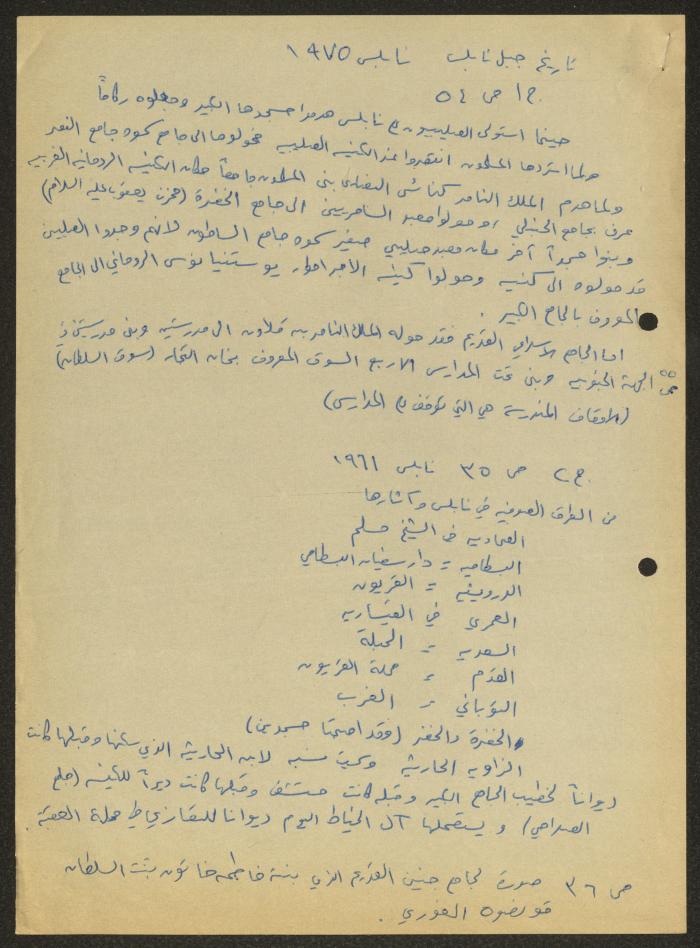 تاريخ جبل نابلس نابلس ١٩٧٥
ج١ ص ٥٤
حينما استولى الصليبيون على نابلس هدموا مسجدها الكبير وجعلوه ركاماً
ولما استردها المسلمون انتقموا عند الكنيسة الصليبية فحولوها الى جامع سموه جامع النصر
ولما هدم الملك الناصر كنائس النصارى بنى المسلمون جامعاً مكان الكنيسة الرومانية الغربية
عرف بجامع الحنبلي وحولوا معبد السامريين الى جامع الخضرة (حزن يعقوب عليه السلام)
وبنوا مسجداً آخر مكان معبد صليبي صغير سموه جامع الساطون لانهم وجدوا الصليبيين
قد حولوه الى كنيسة وحولوا كنيسة الأمبراطور يوستنيانوس الروماني الى الجامع
المعروف بالجامع الكبير .
اما الجامع الاسلامي القديم فقد حوله الملك الناصر بن قلاون الى مدرستين وبنى مدرستين في
ص ٥٥ الجهة الجنوبية وبنى تحت المدارس الاربع السوق المعروف بخان التجار (سوق السلطان)
(الاوقاف المندرسة هي التي توقف على المدارس)
ج٢ ص ٣٥ نابلس ١٩٦١
من الطرق الصوفية في نابلس وآثارها
العمادية في الشيخ مسلم
البسطامية = دار سفيان البسطامي
الدرويشية = القريون
العمري في القيسارية
السعدية = الحبلة
القدم = محلة القريون
التوباني = الغرب
الخضرة والخضر (فقد اصبحتا مسجدين)
الزاوية الحارثية وسميت نسبة لابن الحارثية الذي سكنها وقبلها كانت
ديواناً لخطيب الجامع الكبير وقبله كانت مستشفى وقبلها كانت ديراً للكنيسة (جامع
الصلاحي) ويستعملها آل الخياط اليوم ديوانا للتعازي في محلة العقبة .
ص ٣٦ صورة لجامع جنين القديم الذي بنته فاطمة خاتون بنت السلطان
قونصوه الغوري .